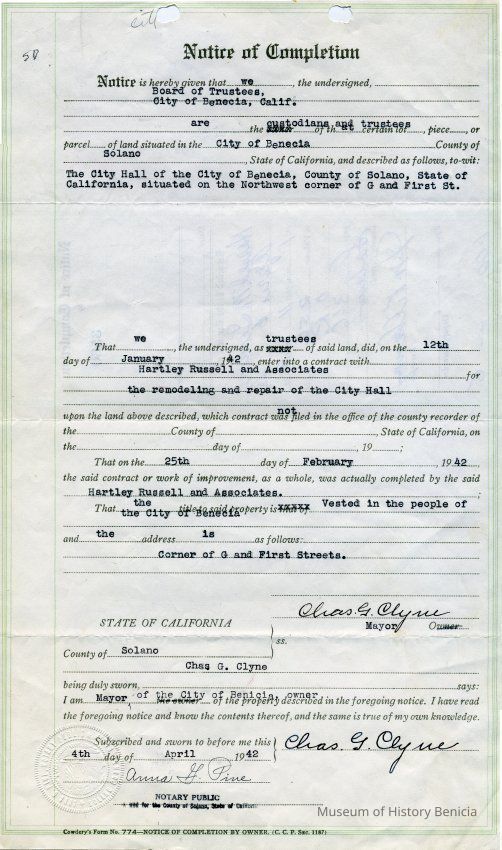 cith
50
Notice of Completion
Notice is hereby given that we the undersigned,
Board of Trustees,
City of Benecia, Calif.
are the custodians and trustees of that certain lot, piece, or
parcel of land situated in the City of Benecia County of
Solano, State of California, and described as follows, to-wit:
The City Hall of the City of Benecia, County of Solano, State of
California, situated on the Northwest corner of G and First St.
That we, the undersigned, as trustees of said land, did, on the 12th
day of January, 1942, enter into a contract with
Hartley Russell and Associates for
the remodeling and repair of the City Hall
not
upon the land above described, which contract was filed in the office of the county recorder of
the County of, State of California, on
the day of, 19;
That on the 25th day of February 1942,
the said contract or work of improvement, as a whole, was actually completed by the said
Hartley Russell and Associates.;
That the title to said property is Vested in the people of
the City of Benecia
and the address is as follows:
Corner of G and First Streets.
Chas. G. Clyne
Mayor Owner
STATE OF CALIFORNIA
ss.
County of Solano
Chas G. Clyne
being duly sworn, says:
I am Mayor of the City of Benicia, owner of the property described in the foregoing notice. I have read
the foregoing notice and know the contents thereof, and the same is true of my own knowledge.
Subscribed and sworn to before me this
4th day of April 1942
Chas. G. Clyne
Anna G. Pine
NOTARY PUBLIC
and for the County of Solano, State of California
Museum of History Benicia
Cowdery's Form No. 774—NOTICE OF COMPLETION BY OWNER. (C. C. P. Sec. 1187)